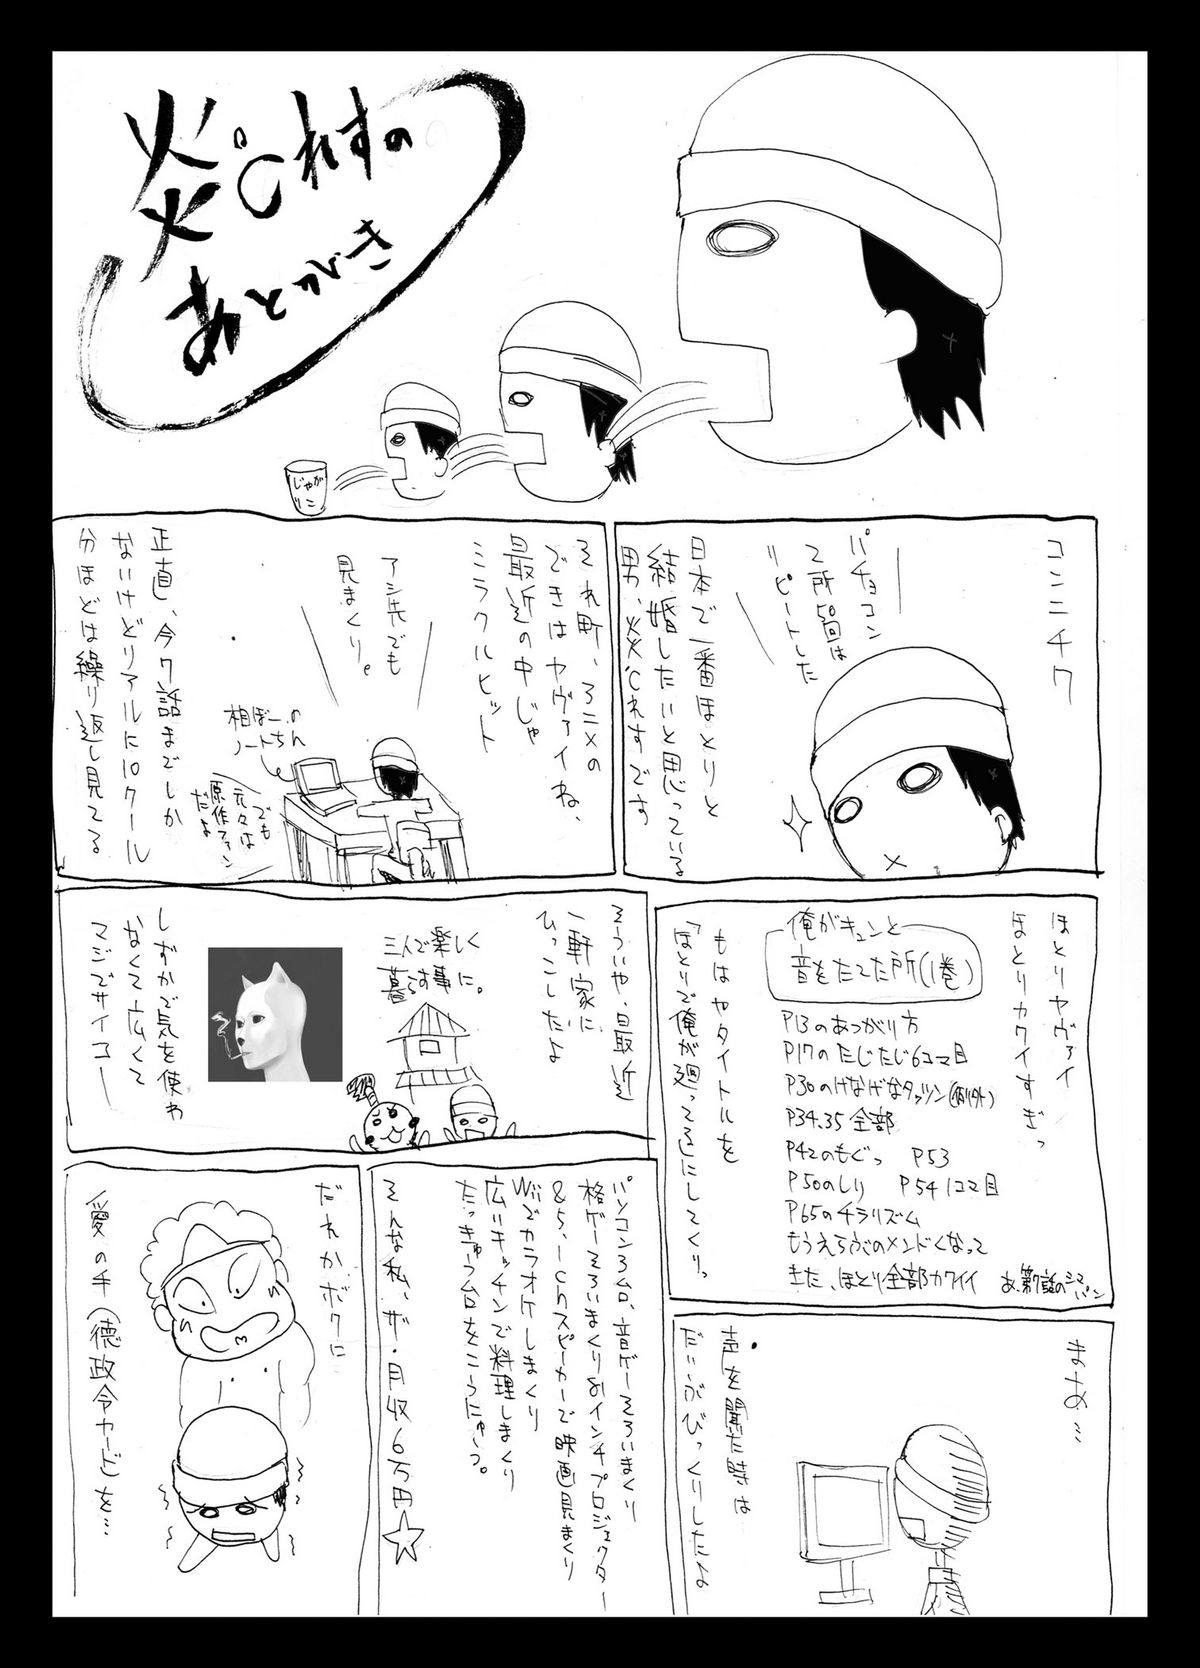 炎℃れすの
あとがき
じゃが
りこ
コンニチワ
パチョコン
2所50回は
リピートした
日本で一番ほとりと
結婚したいと思っている
男、炎℃れすです
それ町、アニメの
できはヤヴァイね、
最近の中じゃ
ミラクルヒット
アシ先でも
見まくり。
相ぼーの
ノートちん
(でも
元々は
原作ファン
だよ
正直、今7話までしか
ないけどリアルに10クール
分ほどは繰り返し見てる
ほとりヤヴァイ
ほとりカワイすぎっ
俺がキュンと
音をたてた所(1巻)
P13のあつがり方
P17のたじたじ6コマ目
P30のけなげなタッツン
P34.35全部
P42のもぐっ P53
P50のしり P54 1コマ目
P65のチラリズム
もうえらぶのメンドくなって
きた、ほとり全部カワイイ
あ、第7話のシマパン
もはやタイトルを
「ほとりで俺が廻ってる」にしてくりっ
そういや、最近
一軒家に
ひっこしたよ
三人で楽しく
暮らす事に。
しずかで気を使わ
なくて広くて
マジでサイコー
まあ…
声を聞た時は
だいぶびっくりしたよ
パソコン3台、音ゲーそろいまくり
格ゲーそろいまくり&インチプロジェクター
&5.1chスピーカーで映画見まくり
Wiiでカラオケしまくり
広いキッチンで料理しまくり
たっきゅう台をこうにゅう。
そんな私、ザ・月収6万円☆
だれかボクに
愛の手(徳政令カード)を…